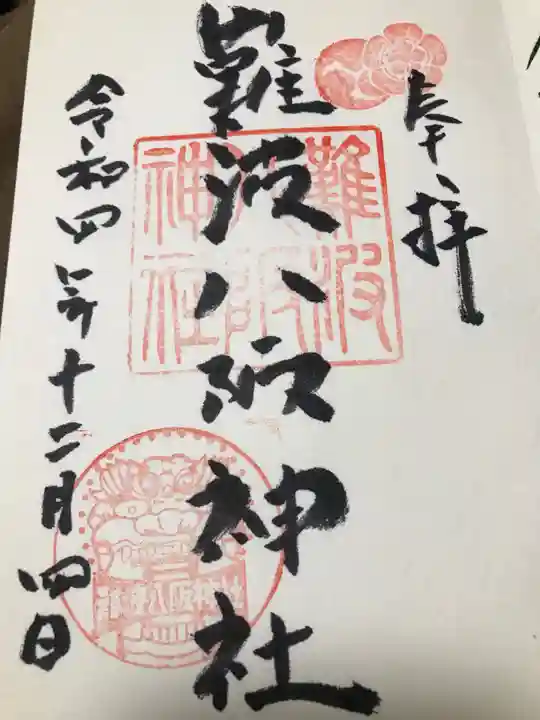 奉拝
難波八阪神社
令和四年十二月四日
難波八阪神社
難波八阪神社